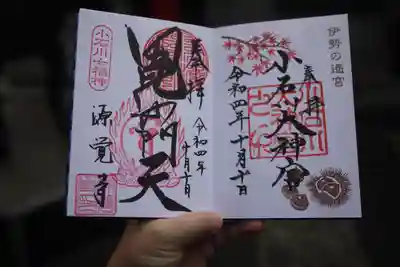 伊勢の遥宮
奉拝
小石川大神宮
令和四年十月十日
奉拝
令和四年
十月十日
小石川七福神
源覚寺